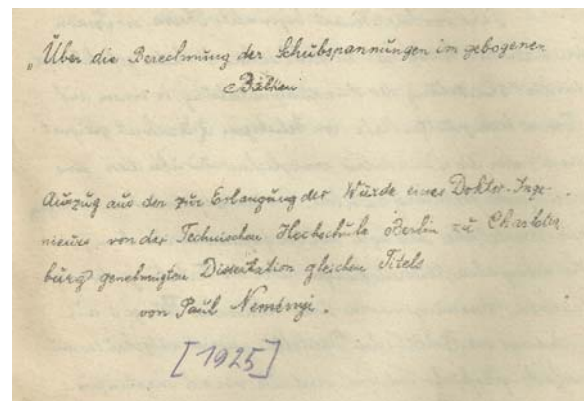 „Über die Berechnung der Schubspannungen in gebogenen
Balken
Auszug aus der zur Erlangung der Würde eines Doktor-Inge-
nieurs von der Technischen Hochschule Berlin zu Charlotten
burg genehmigten Dissertation gleichen Titels
von Paul Neményi.
[1925]